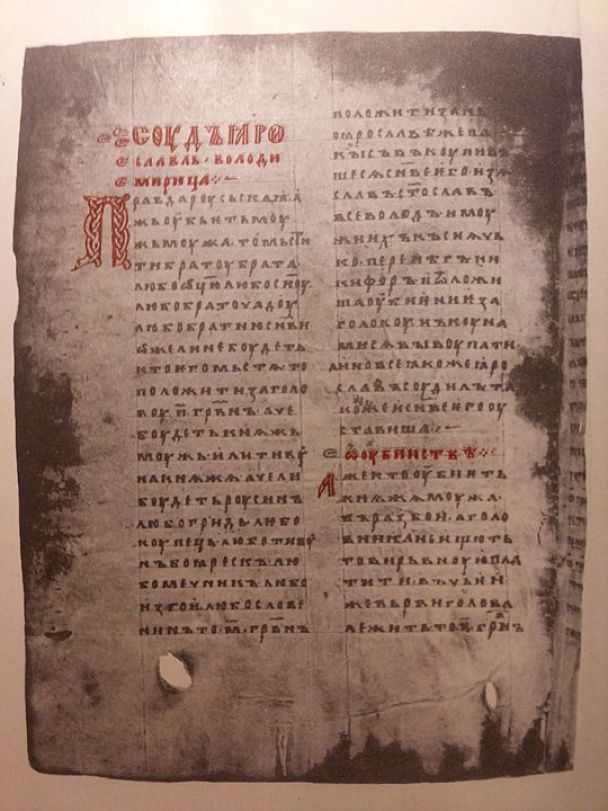 СОУДЪ ꙖРО
СЛАВЛЬ · ВОЛОДИ
МИРИЦА ·
Правда роуськаꙗ · а
жь оубьѥть моу
жь моужа · то мьстити
ти братоу брата ·
любо ѡцю любо с҃ноу ·
любо братоу чадоу ·
любо братню с҃нви
ѡже ли не боудеть
кто ѥго мьстѧ то
положити за голо
воу · п҃ · грв҃нъ · аче
боудеть кнѧжь
моужь или тивоу
на кнѧжа аче ли
боудеть роусинъ
любо гридь любо
коупець любо тивоу
нъ боꙗрескъ лю
бо мечникъ любо
изгои любо слове
нинъ то · м҃ · грв҃нъ
положити за нь
по ꙗрославѣ же
съвъкоупивъ
шесѧ с҃нве ѥго изѧ
славъ ст҃ославъ
всеволодъ и моу
жи ихъ къснѧчь
ко перенѣгъ ни
кифоръ и ѡложи
ша оубиѥниѥ за
голову нъ коуна
ми сѧ выкоупати
а ино все ꙗкоже ꙗро
славъ соудилъ та
коже и с҃нве ѥго оу
ставиша ·
ѡ оубииствѣ ·
Аже кто оубиѥть
кнѧжа моужа
въ разбои · а голо
вника не ищють
то вирьвноую пла
тити въ чьѥи
же вьрви голова
лежить то · п҃ · грв҃нъ